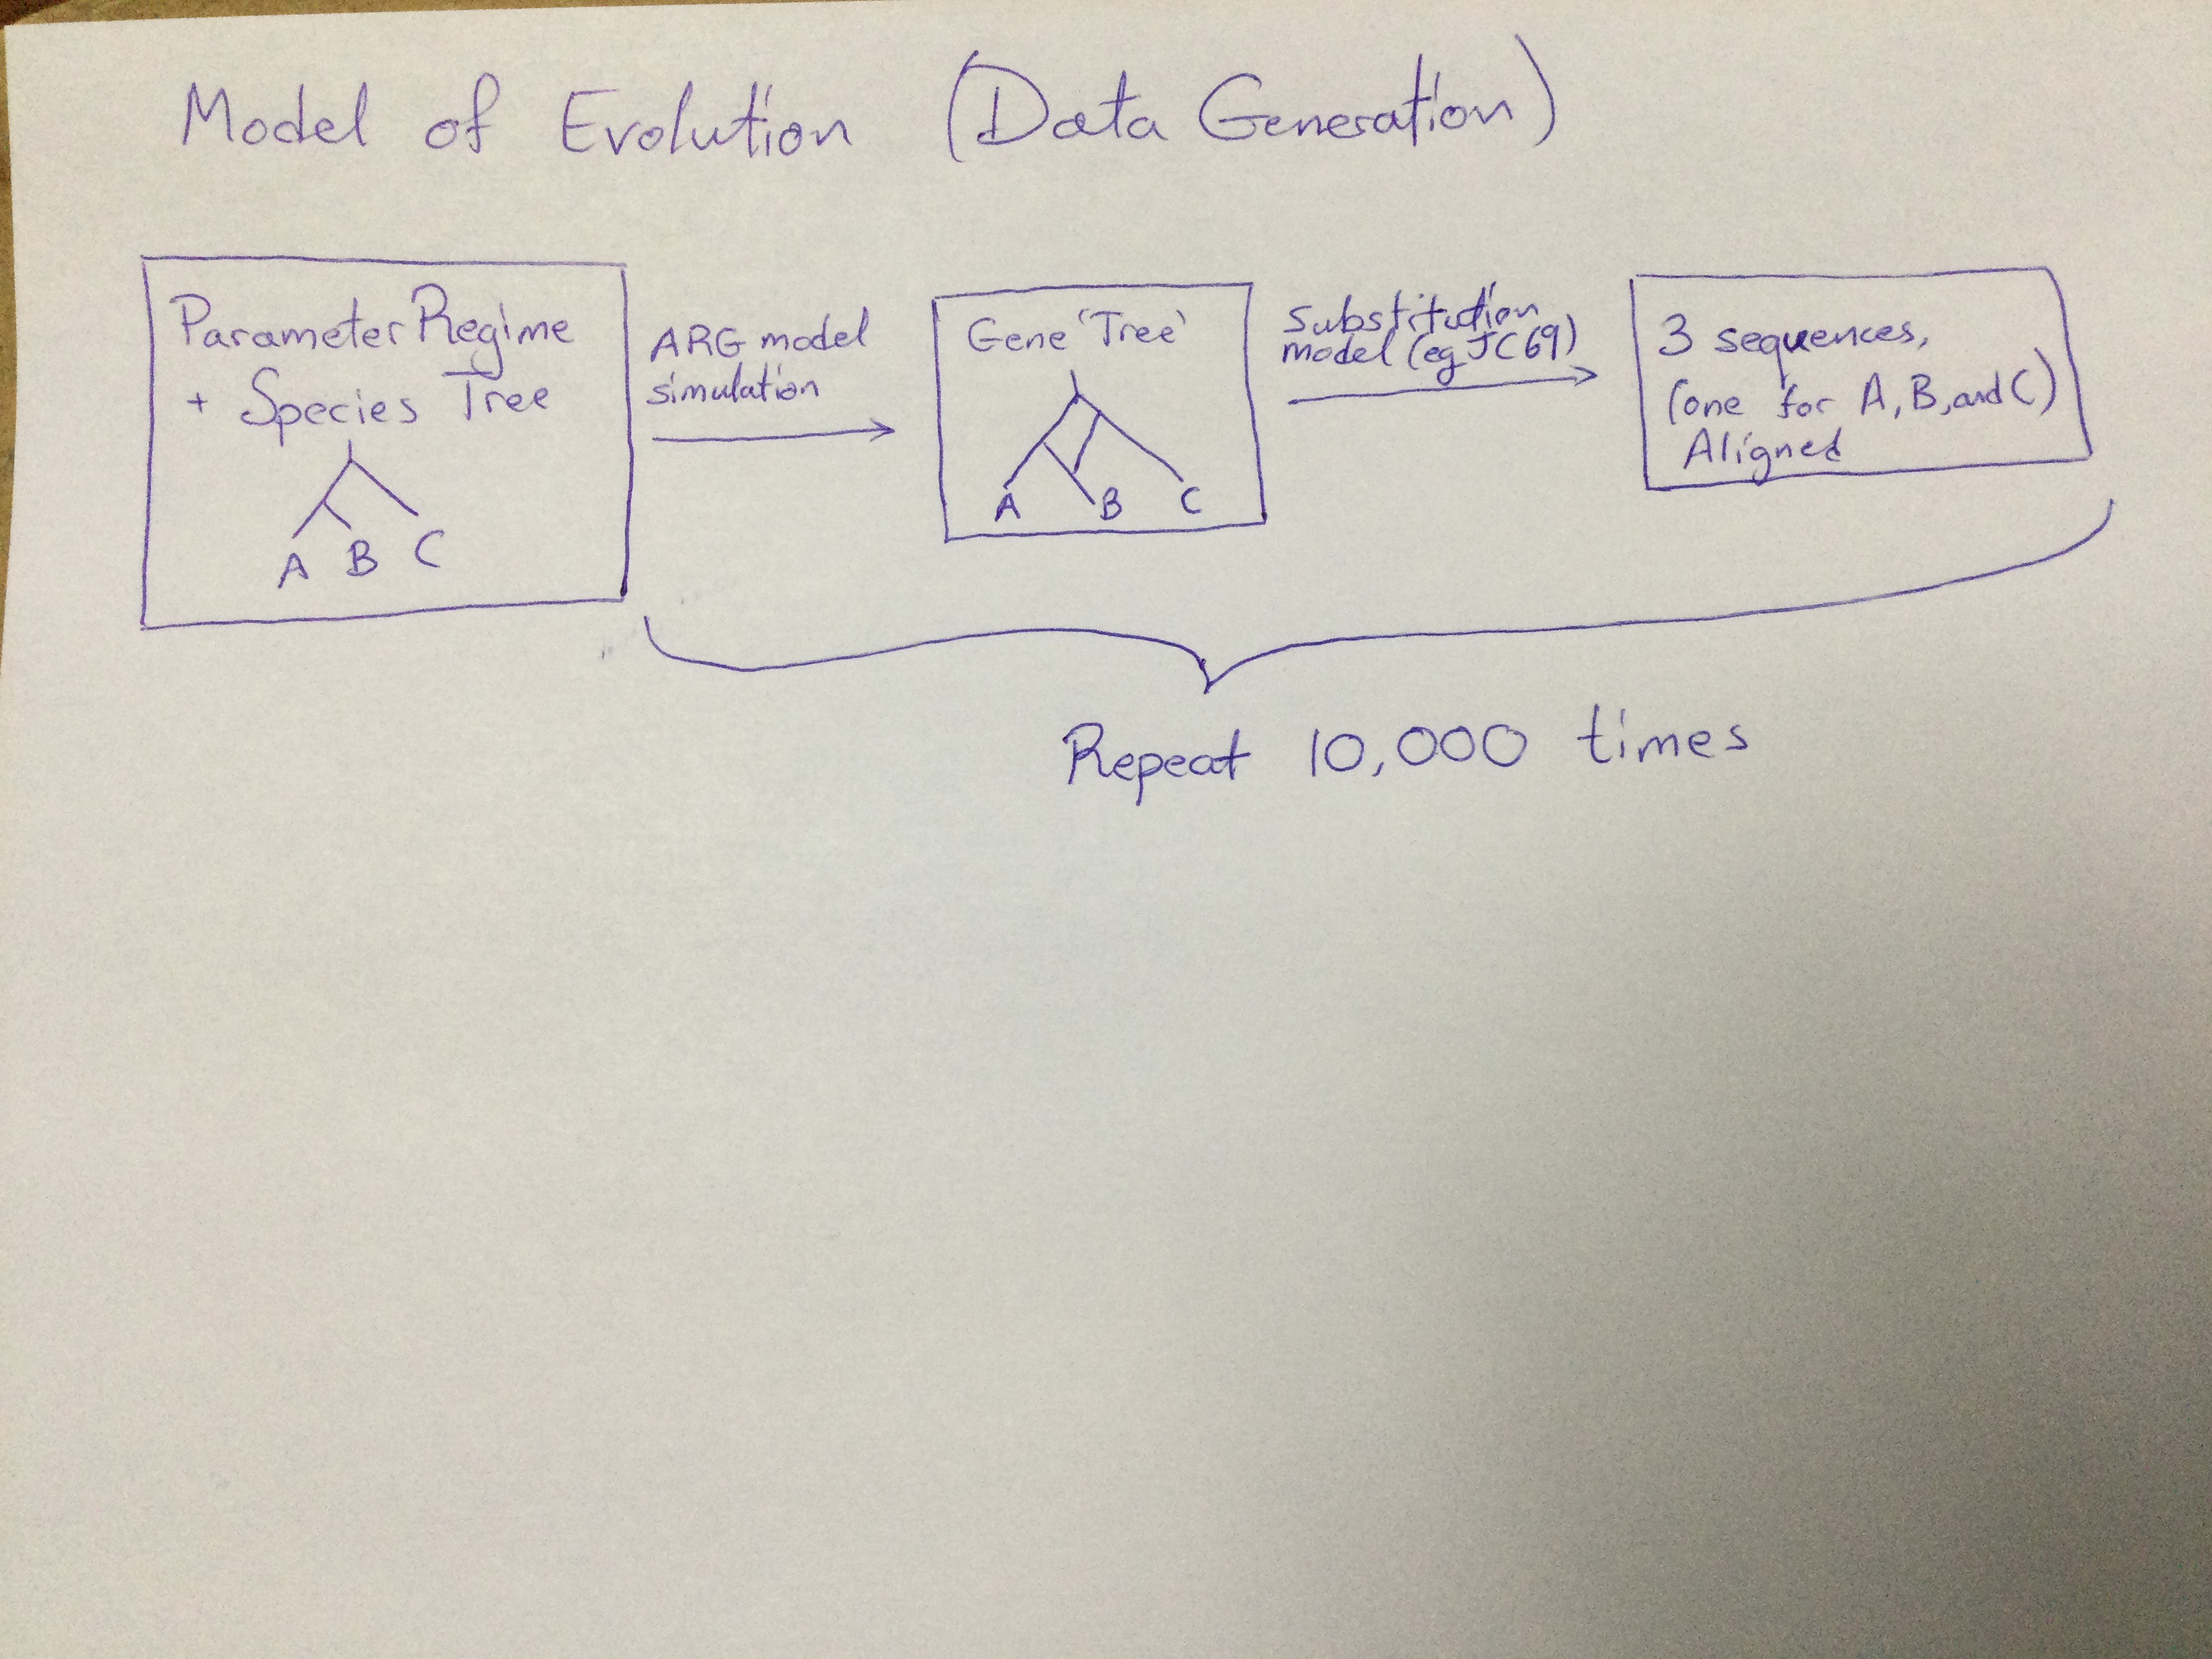 Model of Evolution (Data Generation)
Parameter Regime
+ Species Tree
A B C
ARG model
simulation
Gene "Tree"
A B C
Substitution
model (eg JC69)
3 sequences,
(one for A, B, and C)
Aligned
Repeat 10,000 times